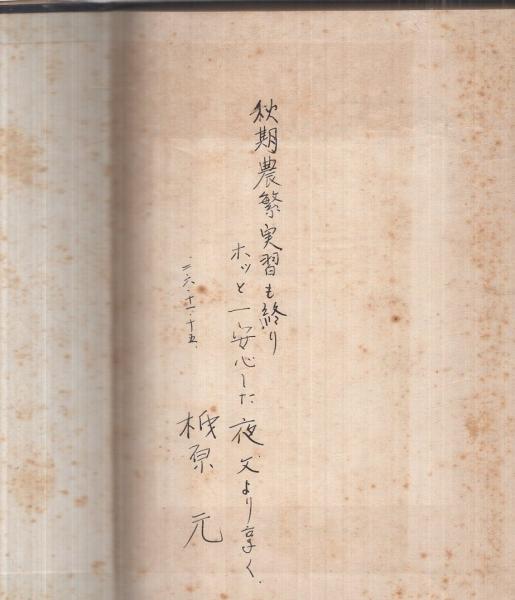 秋期農繁実習も終り
ホッと一安心した夜 父より享く.
.二六.十一.十五.
原 元